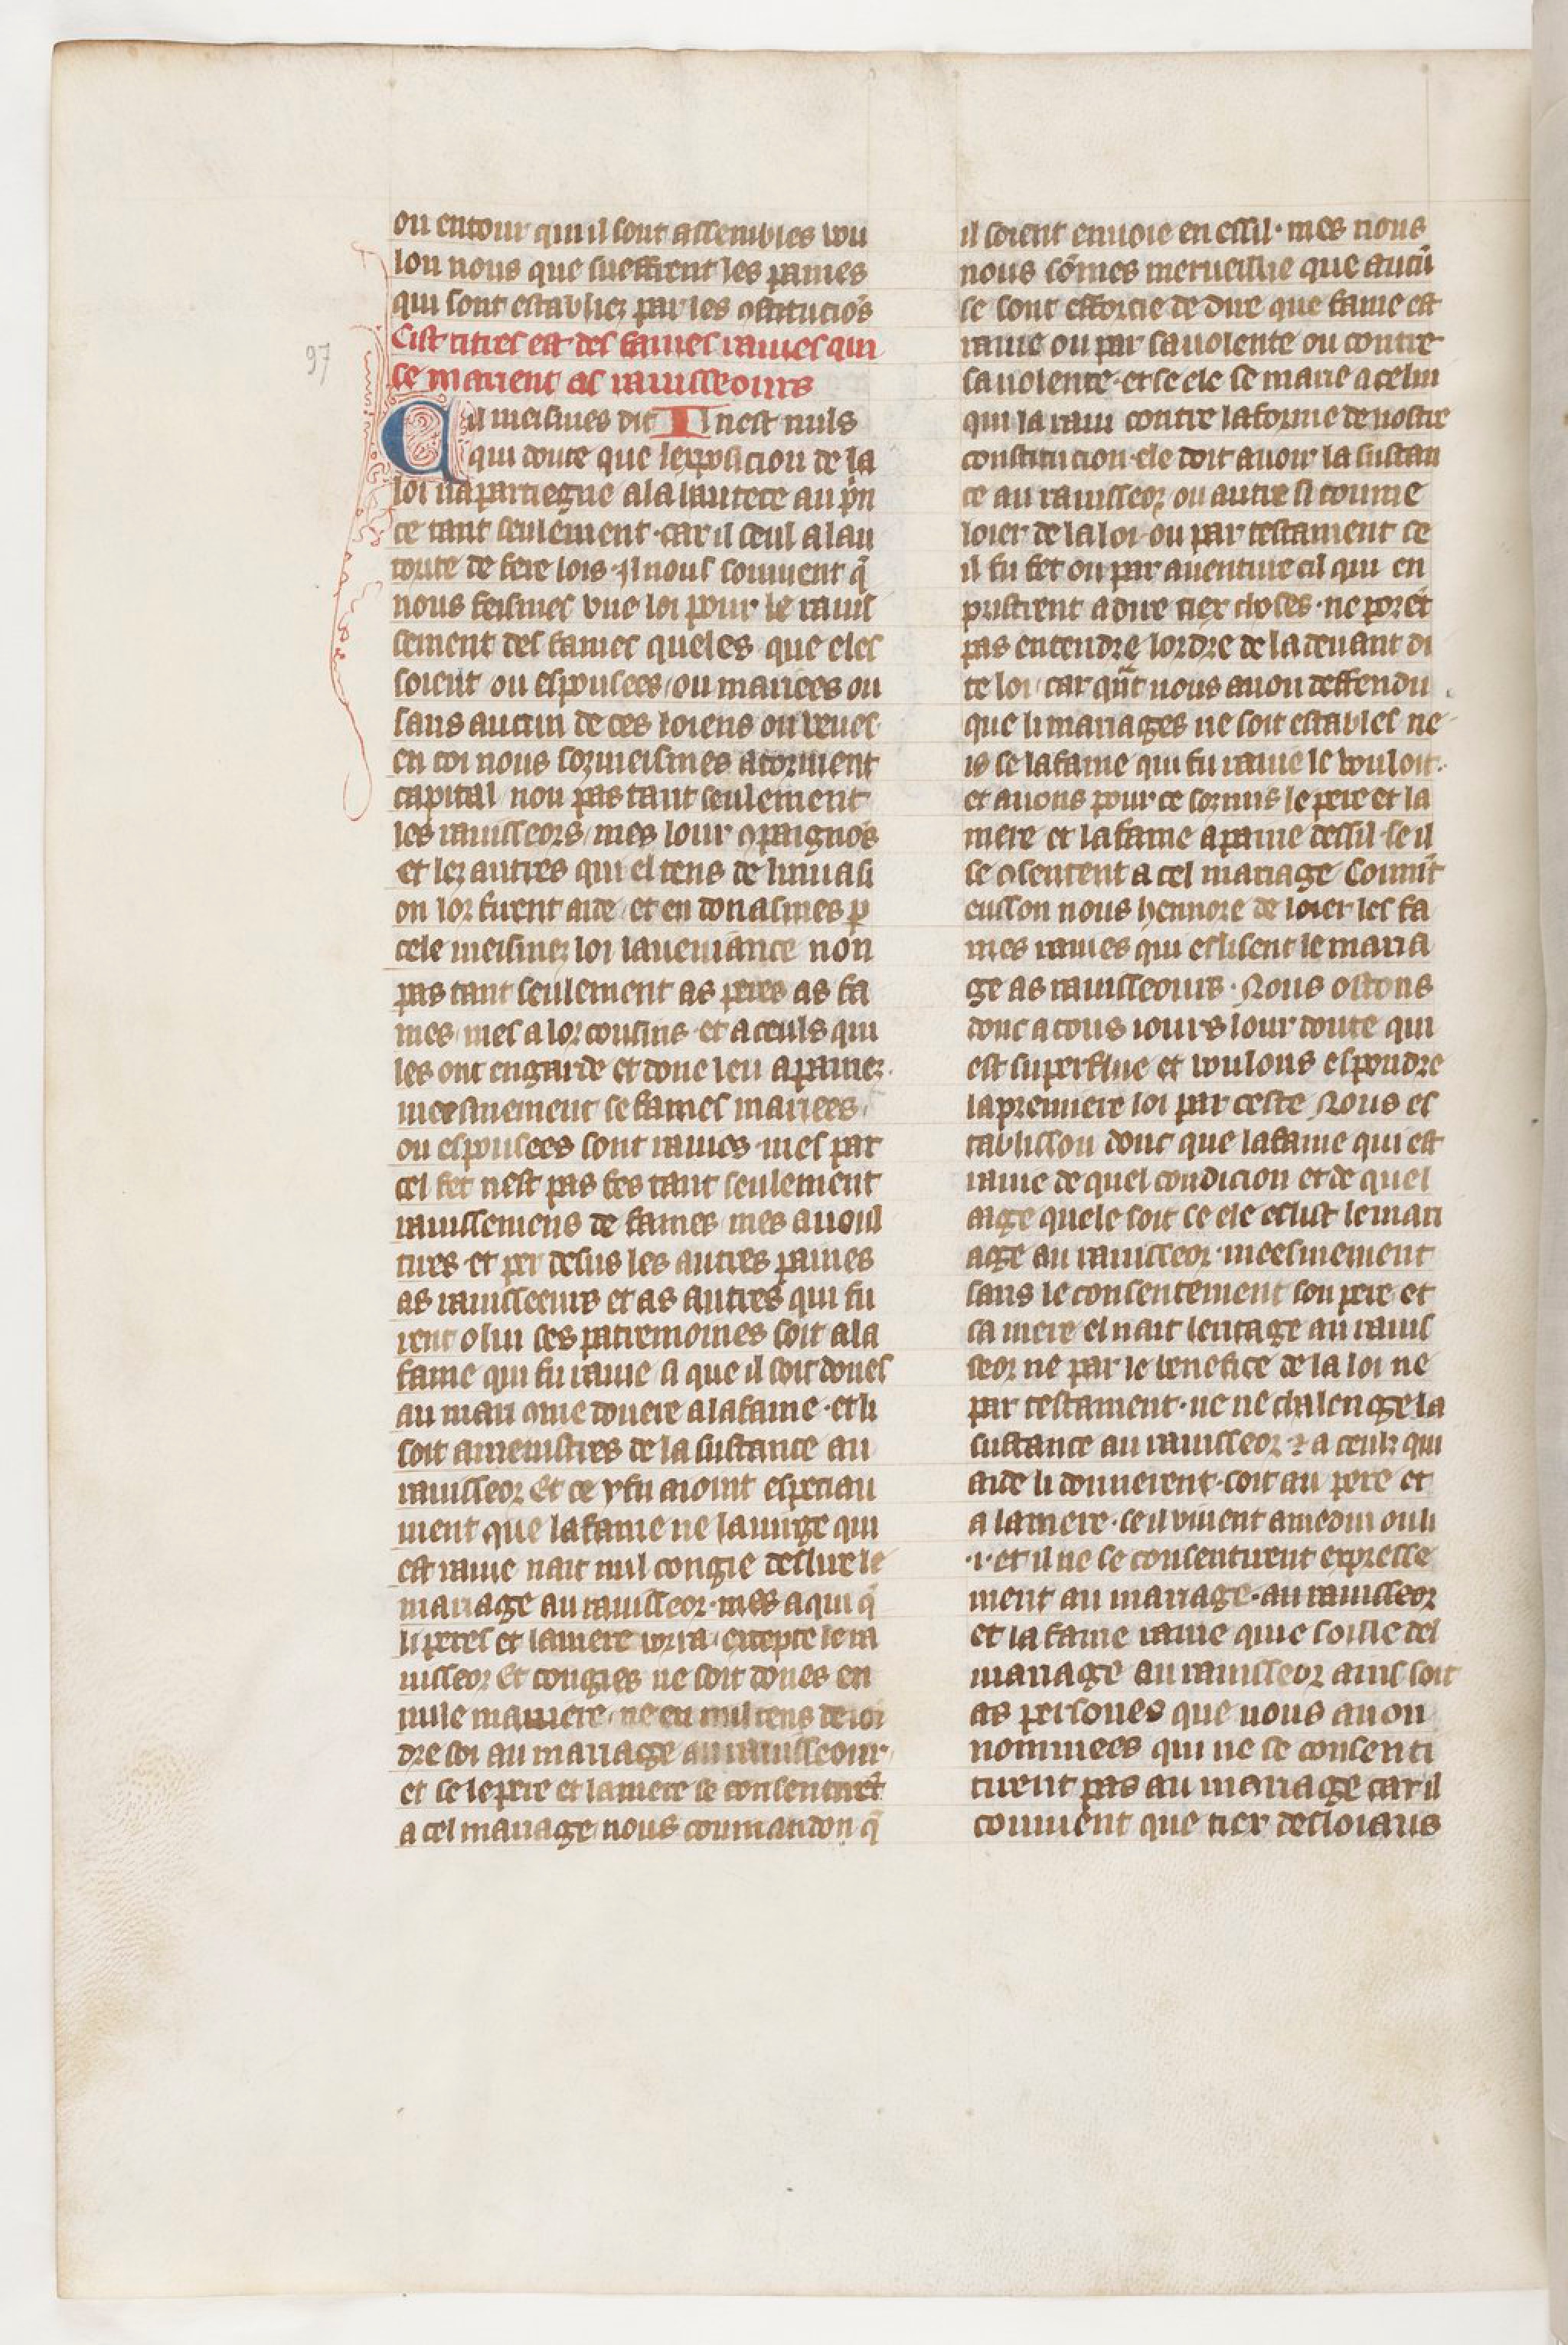 ou entour quil il sont assembles vou
lon nous que sueffrent les paines
qui sont establiez par les ꝯstituciõs
Cist titres est des fames rauies qui
se marient as rauisseours
97
Cil meismes dit Il nest nuls
qui doute que lexposicion de la
loi napartiegne a la hautece au pⁱn
ce tant seulement · car il ceul a lau
torite de fere lois · Il nous souuient q̃
nous feismes vne loi pour le rauis
sement des fames queles que eles
soient ou espousees ou mariees ou
sans aucun de ces loiens ou veues
en coi nous sozmeismes a torment
capital non pas tant seulement
les rauisseors mes lour ꝯpaignõs
et lez autres qui el tens de linuasi
on lor furent aide et en donasmes p
cele meismez loi la uenjance non
pas tant seulement as peres as fa
mes mes a lor cousins et a ceuls qui
les ont en garde et donc leu a painez
meesmement se fames mariees
ou espousees sont rauies · mes par
cel fet nest pas fes tant seulement
rauissemens de fames mes auoul
tires et per desus les autres paines
as rauisseeurs et as autres qui fu
rent o lui ses patremoines soit a la
fame qui fu rauie si que il soit dones
au mari ꝯme douere a la fame · et li
soit amenistres de la sustance au
rauisseor Et ce y fu aioint especiau
ment que la fame ne la uirge qui
est rauie nait nul congie deslire le
mariage au rauisseor · mes a qui q̃
li peres et la mere vorra excepte le ra
uisseor Et congies ne soit dones en
nule maniere ne en nul tens de ioi
dre soi au mariage au rauisseour
et se le pere et la mere se consentirẽt
a cel mariage nous coumandon q̃
il soient enuoie en essil · mes nous
nous sõmes merueillie que aucũ
se sont efforcie de dire que fame est
rauie ou par sa uolente ou contre
sa uolente · et se ele se marie a celui
qui la raui contre la forme de nostre
constitucion ele doit auoir la sustan
ce au rauisseor ou autresi comme
loier de la loi ou par testament se
il fu fet ou par auenture cil qui en
pristrent a dire tiex choses · ne porẽt
pas entendre lordre de la deuant di
te loi car qñt nous auon deffendu
que li mariages ne soit estables ne
is se la fame qui fu rauie le vouloit
et auons pour ce sozmis le pere et la
mere et la fame a paine dessil se il
se ꝯsentent a cel mariage Commẽt
cuisson nous hennore de loier les fa
mes rauies qui eslisent le maria
ge as rauisseours · Nous ostons
donc a tous iours lour doute qui
est superflue et voulons espondre
la premiere loi par ceste Nous es
tablisson donc que la fame qui est
rauie de quel condicion et de quel
aage quele soit se ele eslist le mari
age au rauisseor meesmement
sans le consentement son pere et
sa mere el nait leritage au rauis
seor ne par le benefice de la loi ne
par testament · ne ne chalenge la
sustance au rauisseor ⁊ a ceulz qui
aide li donnerent · soit au pere et
a la mere · se il viuent amedui ou li
·i· et il ne se consentirent expresse
ment au mariage · au rauisseor
et la fame rauie quie soille del
mariage au rauisseor ains soit
as persones que nous auon
nommees qui ne se consenti
tirent pas au mariage car il
couuient que tier desloiaus